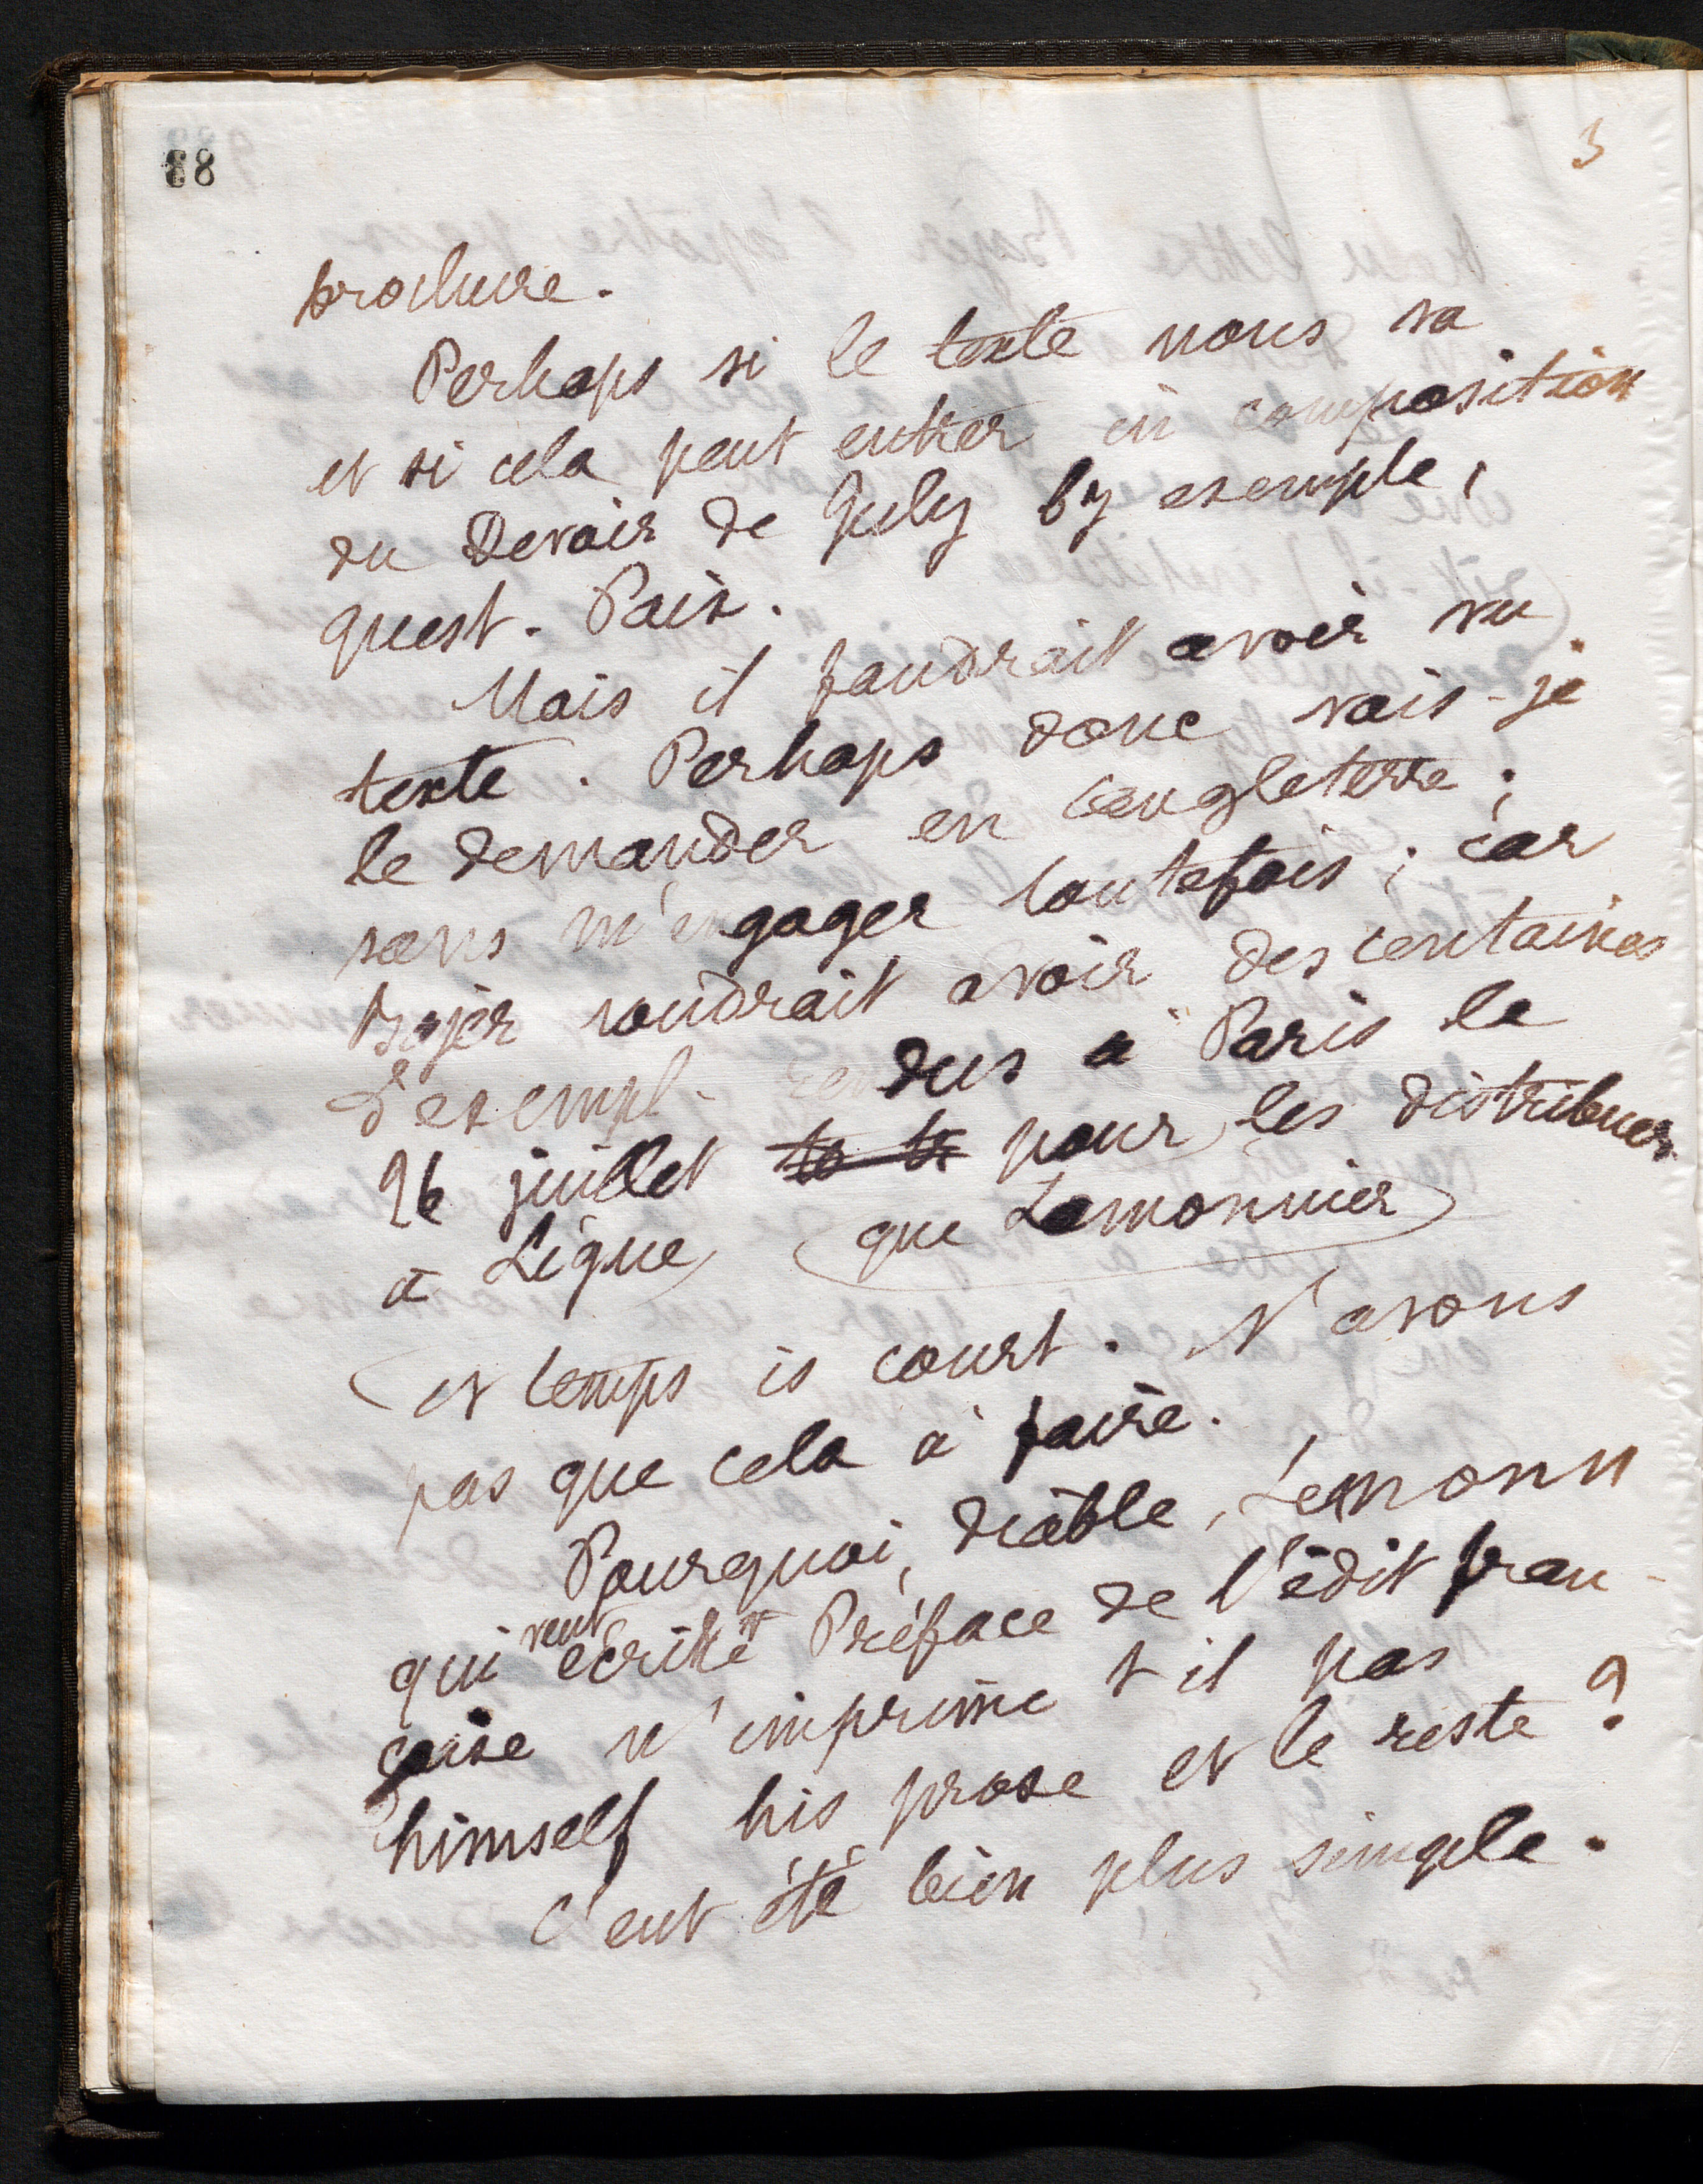 88
3
brochure.
Perhaps si le texte nous va
et si cela peut entrer in composition
du Devoir de July by exemple,
quest. Paix.
Mais il faudrait avoir vu
texte. Perhaps donc vais-je
le demander en Langleterre;
sans m'engager toutefois; car
Bajer voudrait avoir des centaines
d'exempl. rendus à Paris le
26 juillet pour les distribuer
à Ligue (que Lemonnier)
(et temps is court. N'avons
pas que cela à faire.
Pourquoi, diable, Lemonn
qui veut écrire Préface de l'édit fran-
çaise n'imprime t il pas
himself his prose et le reste?
C'eut été bien plus simple.